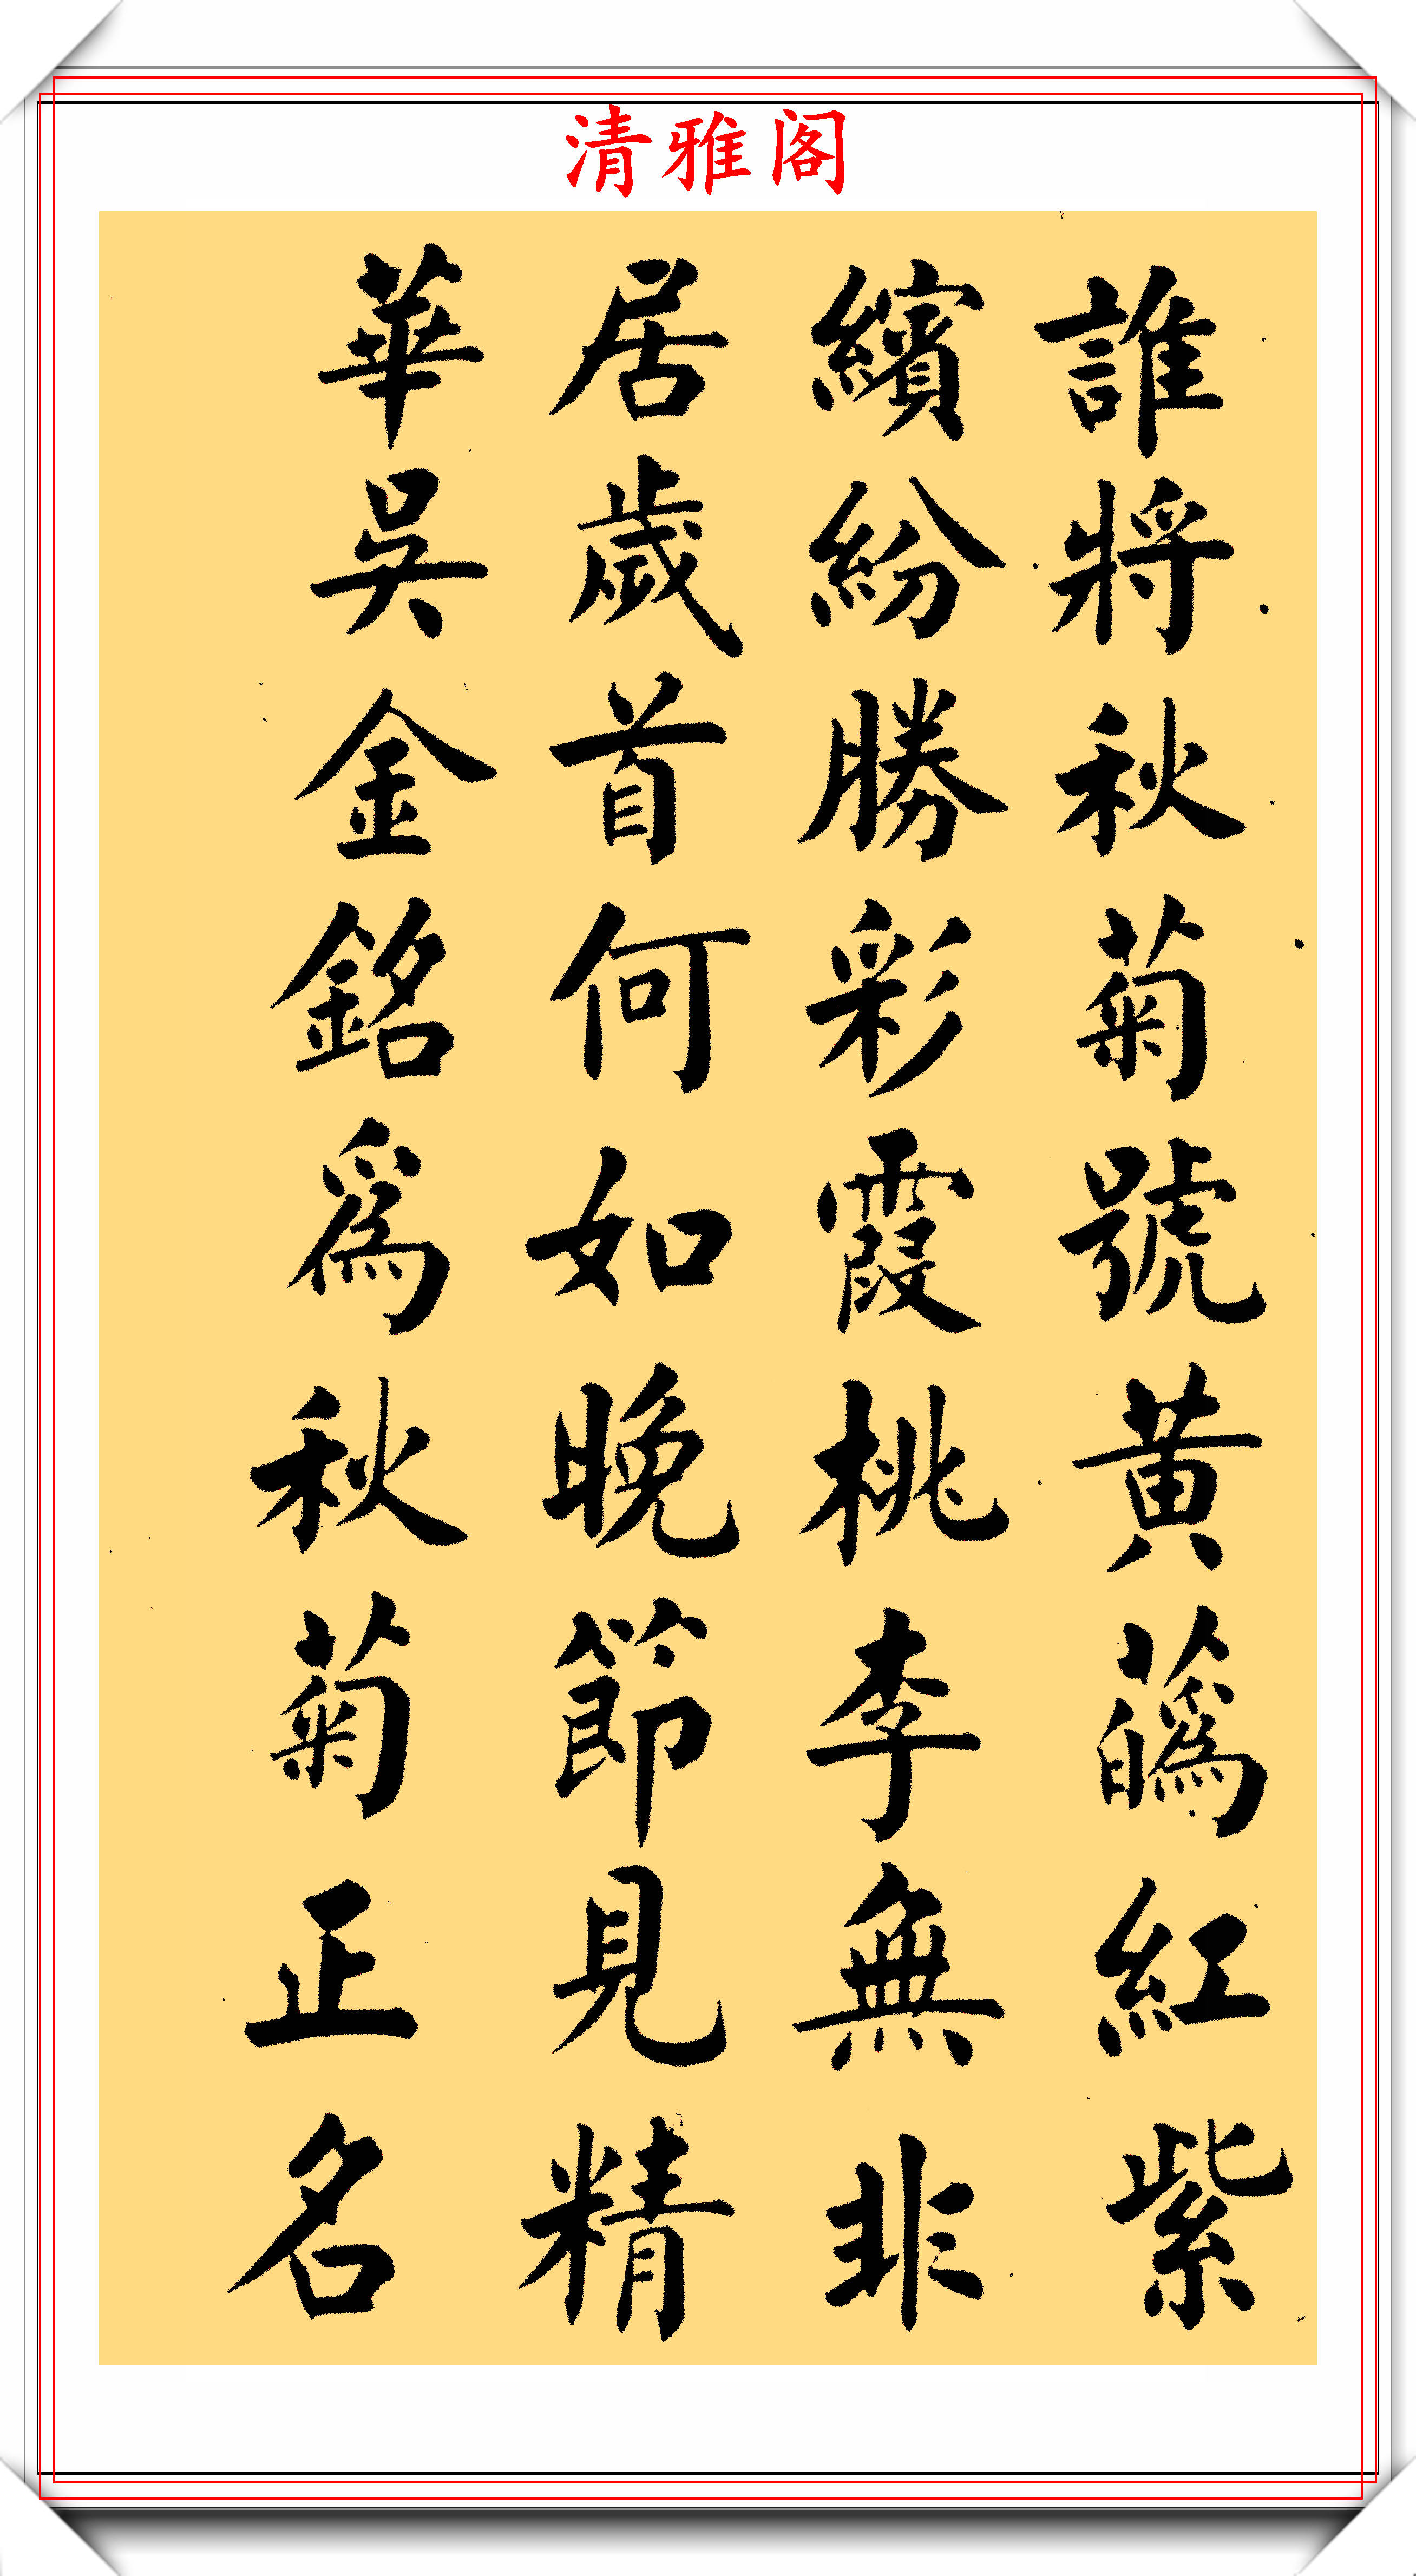 清雅阁
誰將秋菊號黃蘤紅紫
繽紛勝彩霞桃李無非
居歲首何如晚節見精
華吳金銘爲秋菊正名